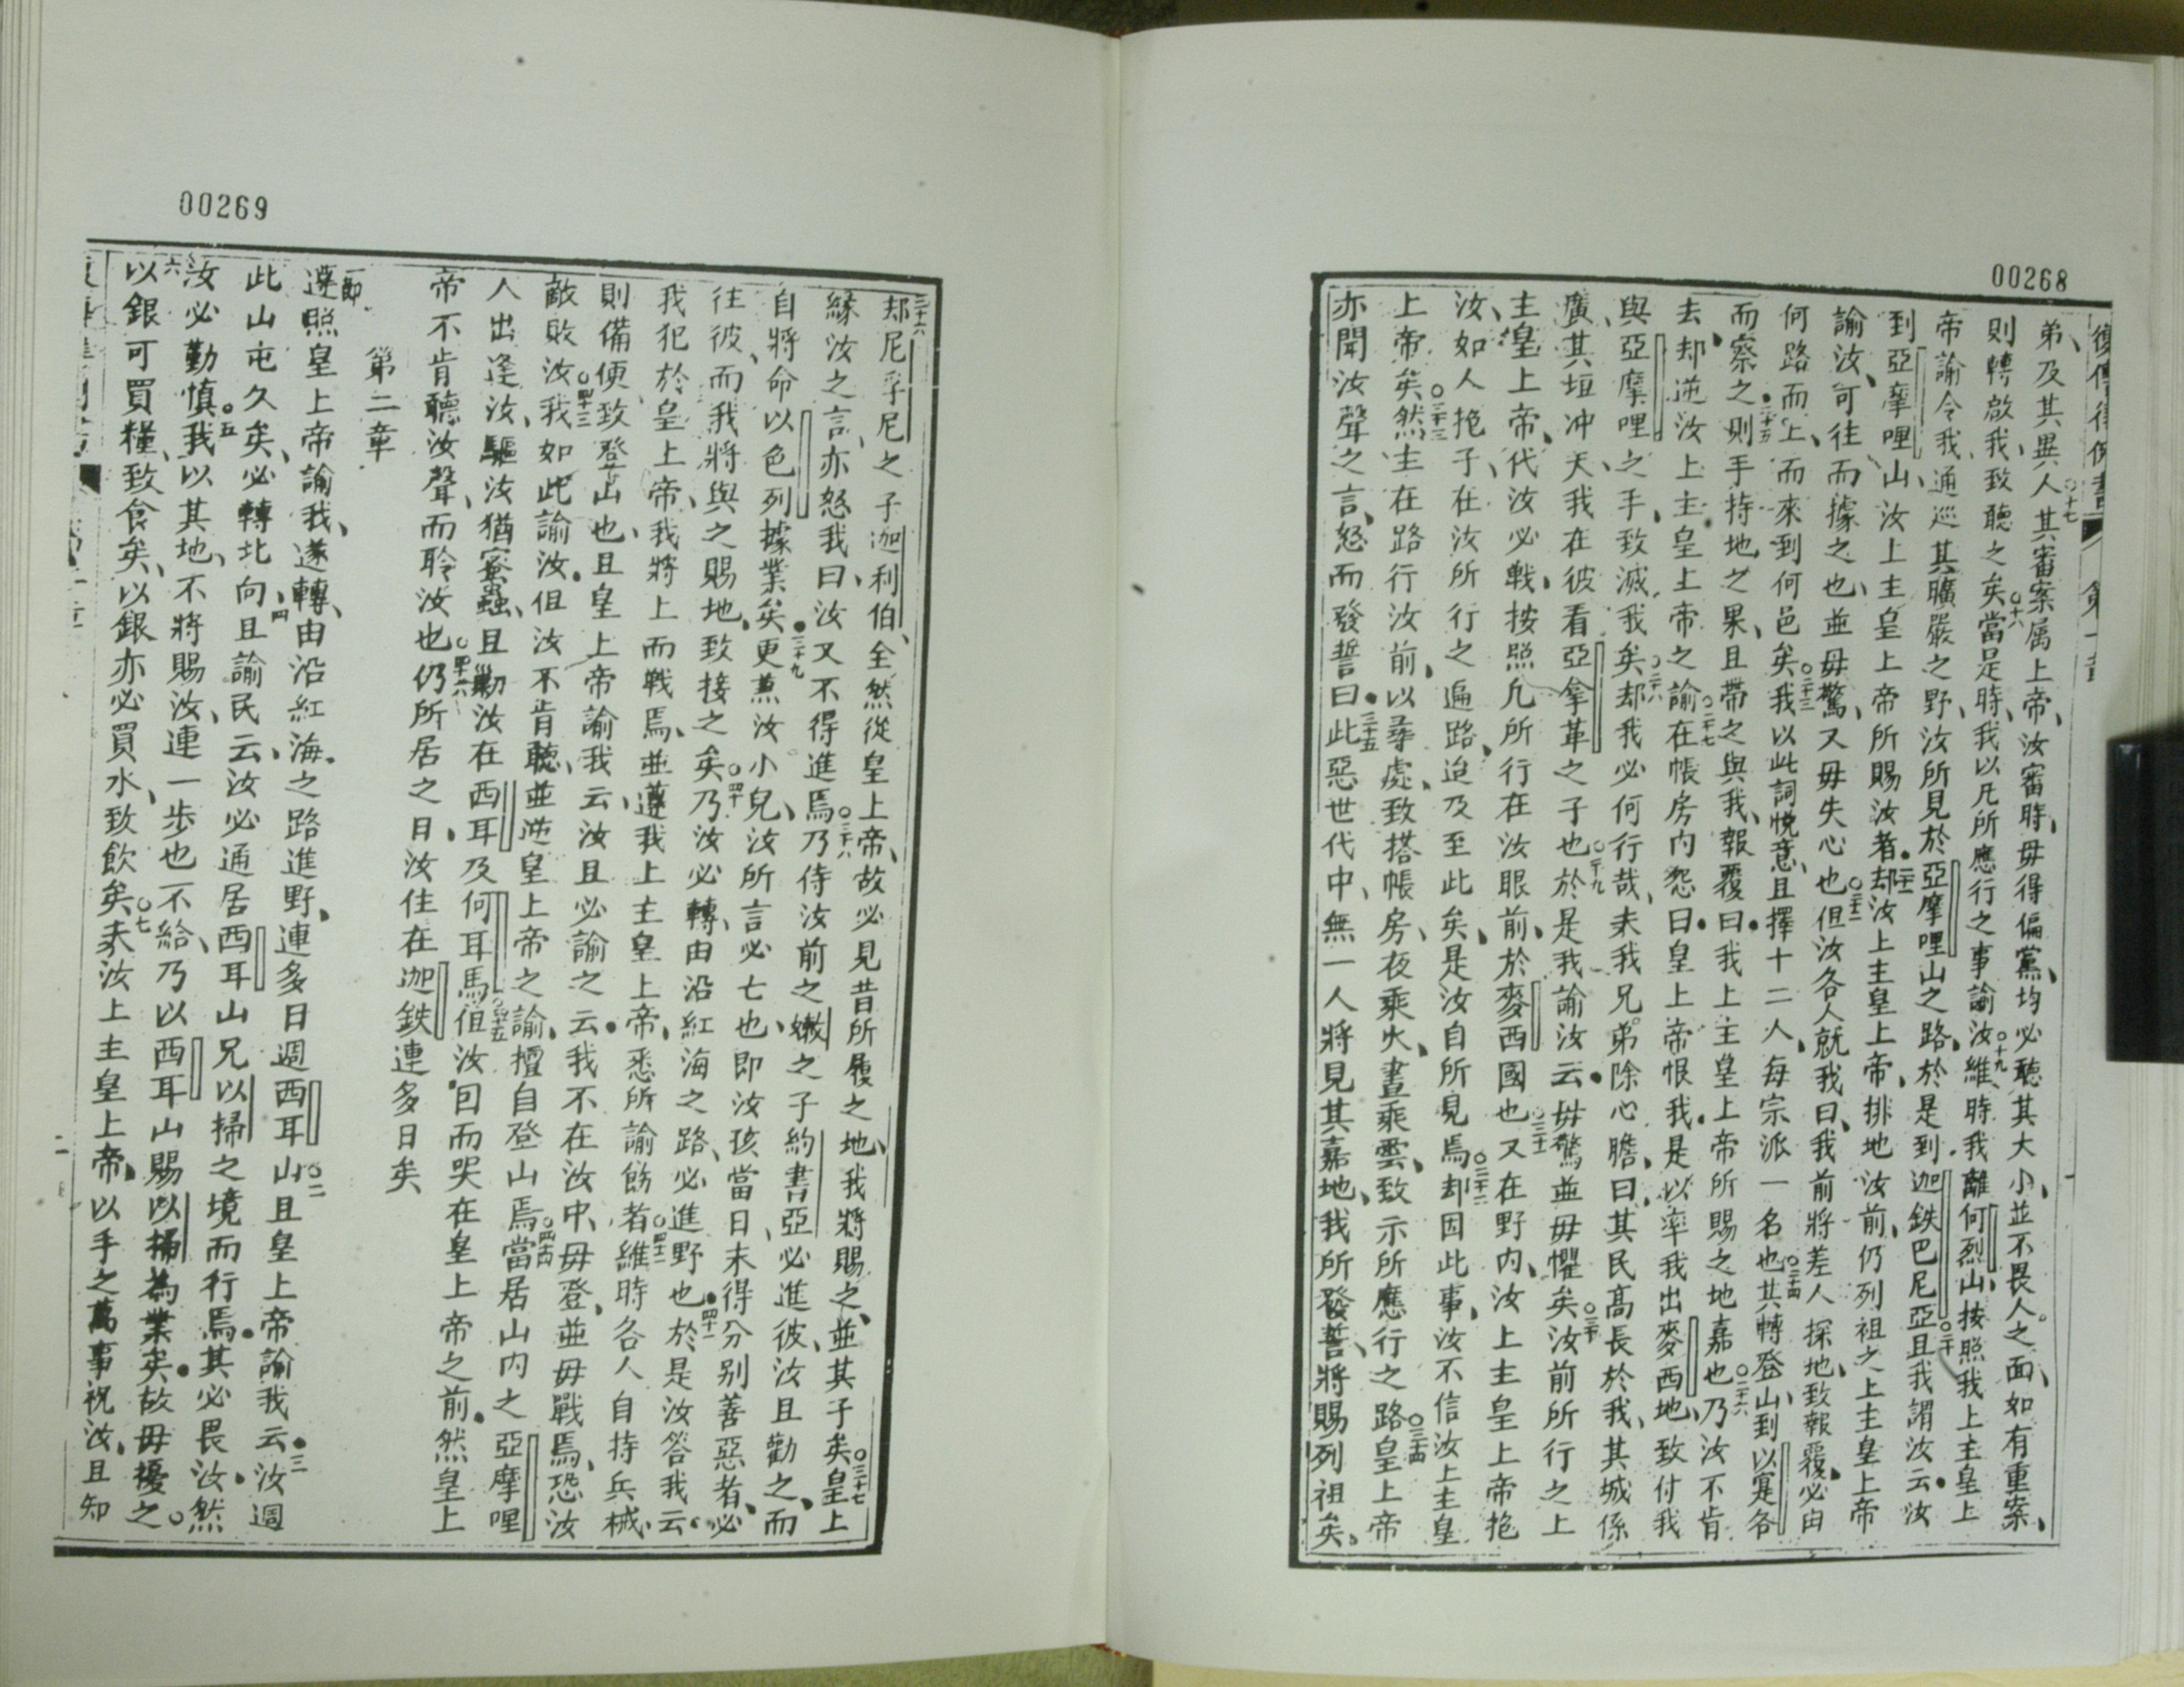 00268
復傳律例書 第一章
弟、及其異人、○十七其審案属上帝、汝審時、毋得偏黨、均必聽其大小、並不畏人之面、如有重案、
則轉啟我、致聽之矣、○十八當是時、我以凡所應行之事諭汝、○十九維時我離何烈山、按照我上主皇上
帝諭令我、通巡其曠嚴之野、汝所見於亞摩哩山之路、於是到迦鉄巴尼亞、○二十且我謂汝云、汝
到亞摩哩山、汝上主皇上帝所賜汝者、○二十一却汝上主皇上帝、排地汝前、仍列祖之上主皇上帝
諭汝、可往而據之也、並毋驚、又毋失心也、○二十二但汝各人就我曰、我前將差人探地、致報覆、必由
何路而上、而來到何邑矣、○二十三我以此詞悅意、且擇十二人、每宗派一名也、○二十四其轉登山、到以寔谷
而察之、○二十五則手持地之果、且帶之與我、報覆曰、我上主皇上帝所賜之地嘉也、○二十六乃汝不肯
去、却逆汝上主皇上帝之諭、○二十七在帳房内怨曰、皇上帝恨我、是以率我出麥西地、致付我
與亞摩哩之手、致滅我矣、○二十八却我必何行哉、我兄弟除心膽、曰、其民高長於我、其城係
廣、其垣冲天、我在彼看亞拿革之子也、○二十九於是我諭汝云、毋驚並毋懼矣、○三十汝前所行之上
主皇上帝、代汝必戰、按照凡所行在汝眼前、於麥西國也、○三十一又在野内、汝上主皇上帝抱
汝、如人抱子、在汝所行之遍路、迨及至此矣、是汝自所見焉、○三十二却因此事、汝不信汝上主皇
上帝矣、○三十三然主在路行汝前、以尋處、致搭帳房、夜乘火、晝乘雲、致示所應行之路、○三十四皇上帝
亦聞汝聲之言、怒而發誓曰、○三十五此惡世代中、無一人將見其嘉地、我所發誓、將賜列祖矣、
00269
三十六却尼孚尼之子迦利伯、全然從皇上帝、故必見昔所履之地、我將賜之、並其子矣、○三十七皇上
緣汝之言、亦怒我、曰、汝又不得進焉、○三十八乃侍汝前之嫩之子約書亞、必進彼、汝且勸之、而
自將命以色列據業矣、○三十九更䓍汝小兒、汝所言必七也、即汝孩當日未得分别善惡者、必
往彼、而我將與之賜地、致接之矣、○四十乃汝必轉、由沿紅海之路、必進野也、○四十一於是汝答我云、
我犯於皇上帝、我將上而戰焉、並遵我上主皇上帝、悉所諭飭者、○四十二維時各人自持兵械、
則備便、致登山也、且皇上帝諭我云、汝且必諭之云、我不在汝中、毋登、並毋戰焉、恐汝
敵敗汝、○四十三我如此諭汝、但汝不肯聽、並逆皇上帝之諭、擅自登山焉、○四十四當居山内之亞摩哩
人出逢汝、驅汝猶蜜蟲、且勦汝在西耳及何耳馬、○四十五但汝回而哭在皇上帝之前、然皇上
帝不肯聽汝聲、而聆汝也、○四十六仍所居之日、汝住在迦鉄連多日矣、
第二章
一節遵照皇上帝諭我、遂轉、由沿紅海之路進野、連多日週西耳山、○二且皇上帝諭我云、○三汝週
此山屯久矣、必轉北向、○四且諭民云、汝必通居西耳山兄以掃之境而行焉、其必畏汝、然
汝必勤慎、○五我以其地、不將賜汝、連一歩也不給、乃以西耳山賜以掃為業矣、故毋擾之、
○六以銀可買糧、致食矣、以銀亦必買水、致飲矣、○七夫汝上主皇上帝、以手之萬事祝汝、且知
二